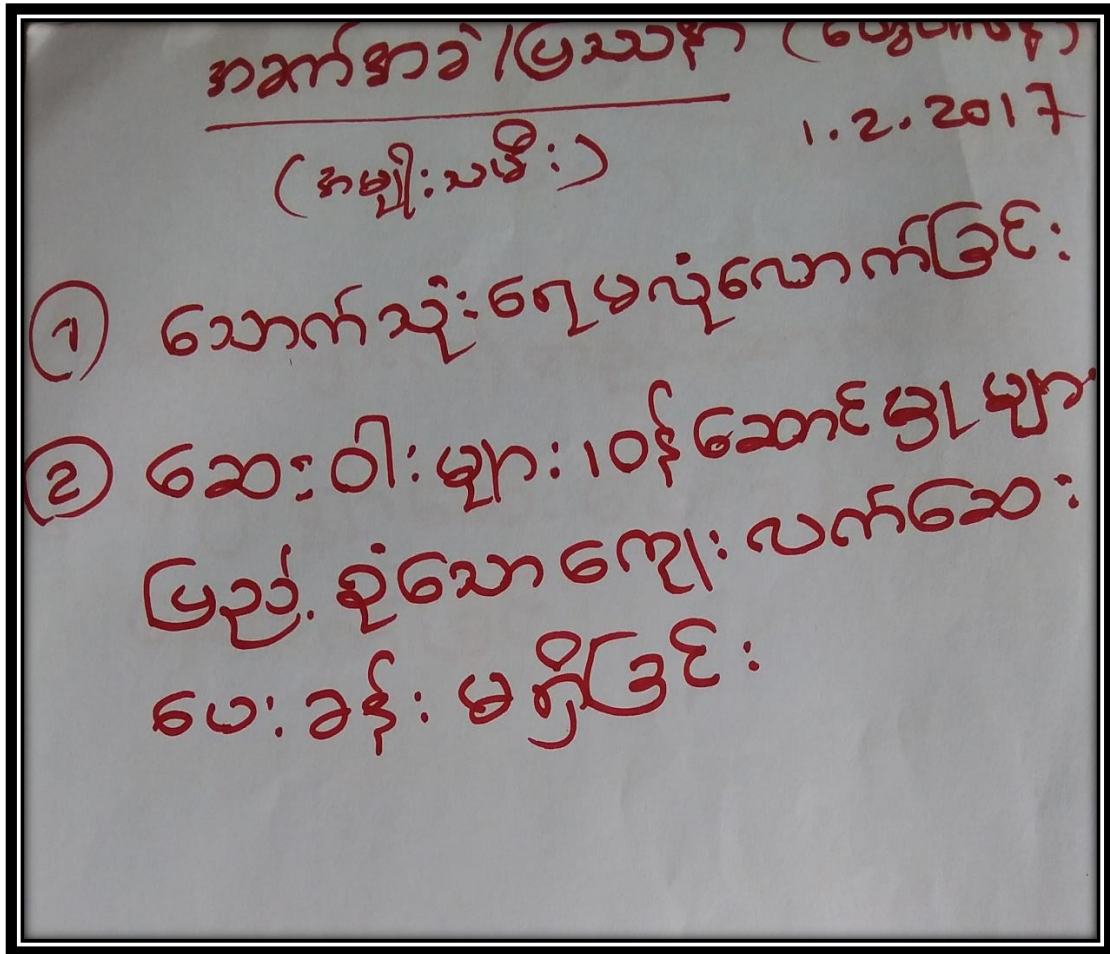 အခက်အခဲ/ပြဿနာ
1.2.2017
(အမျိုးသမီး)
၁ သောက်သုံးရေမလုံလောက်ခြင်း
2 ဆေးဝါးများ၊ ဝန်ဆောင်မှုများ
ပြည့်စုံသော ကျေးလက်ဆေး
ပေးခန်း မရှိခြင်း